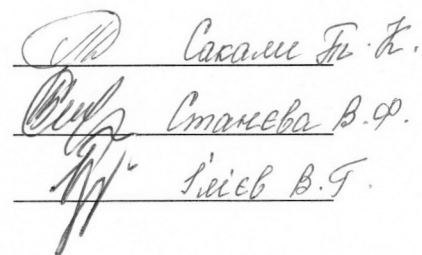 Сакали Т. К.
Станєва В. Ф.
Ілієв В. Г.